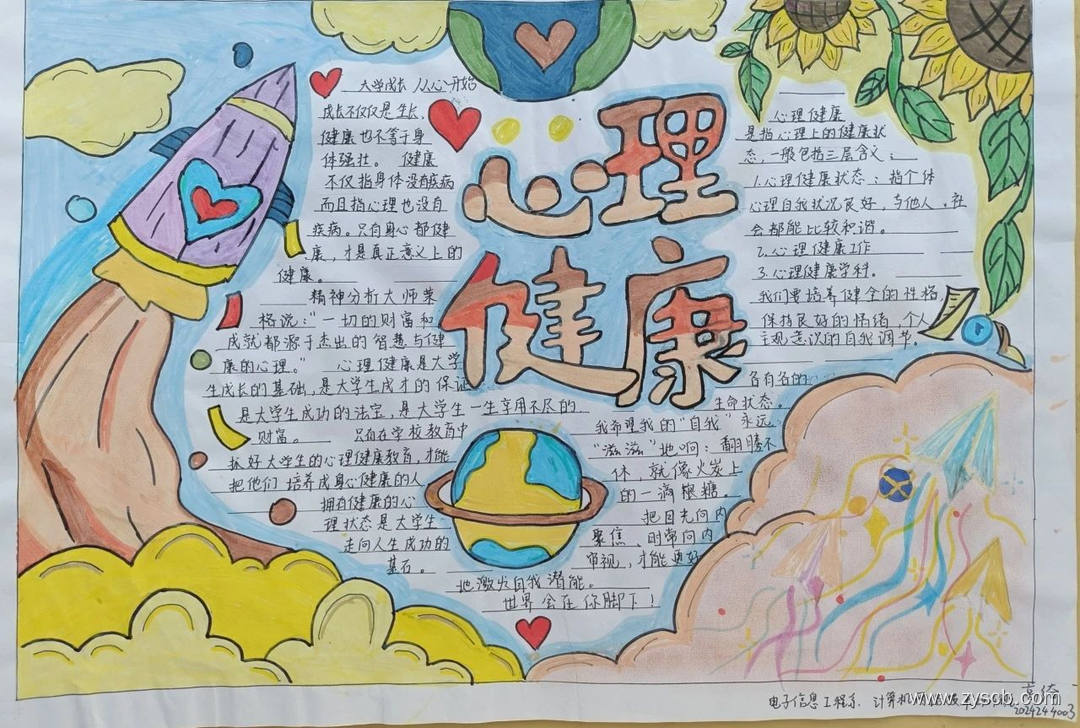 大学成长 从心开始
成长不仅仅是生长,
健康也不等于身
体强壮。 健康
不仅指身体没有疾病
而且指心理也没有
疾病。只有身心都健
康，才是真正意义上的
健康。
精神分析大师荣
格说："一切的财富和
成就都源于杰出的智慧与健
康的心理。" 心理健康是大学
生成长的基础,是大学生成才的保证
是大学生成功的法宝,是大学生一生享用不尽的
财富。 只有在学校教育中
抓好大学生的心理健康教育,才能
把他们培养成身心健康的人
拥有健康的心
理状态是大学生
走向人生成功的
基石。
心理
健康
心理健康
是指心理上的健康状
态,一般包括三层含义:
1.心理健康状态：指个体
心理自我状况良好,与他人、社
会都能比较和谐。
2.心理健康工作
3.心理健康学科。
我们要培养健全的性格,
保持良好的情绪,个人
主观意识的自我调节。
各有各的
生命状态。
我希望我的"自我"永远
"滋滋"地响：翻腾不
休，就像火炭上
的一滴糖。
把目光向内
聚焦、时常向内
审视，才能更好
地激发自我潜能。
世界会在你脚下！
电子信息工程系. 计算机
www.zyspb.com
2024244003